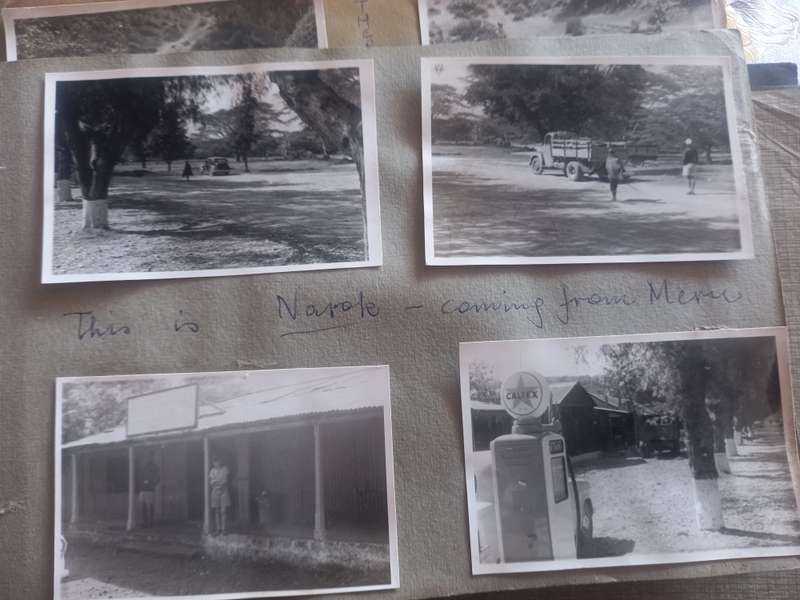 This is Narok - coming from Meru
CALTEX